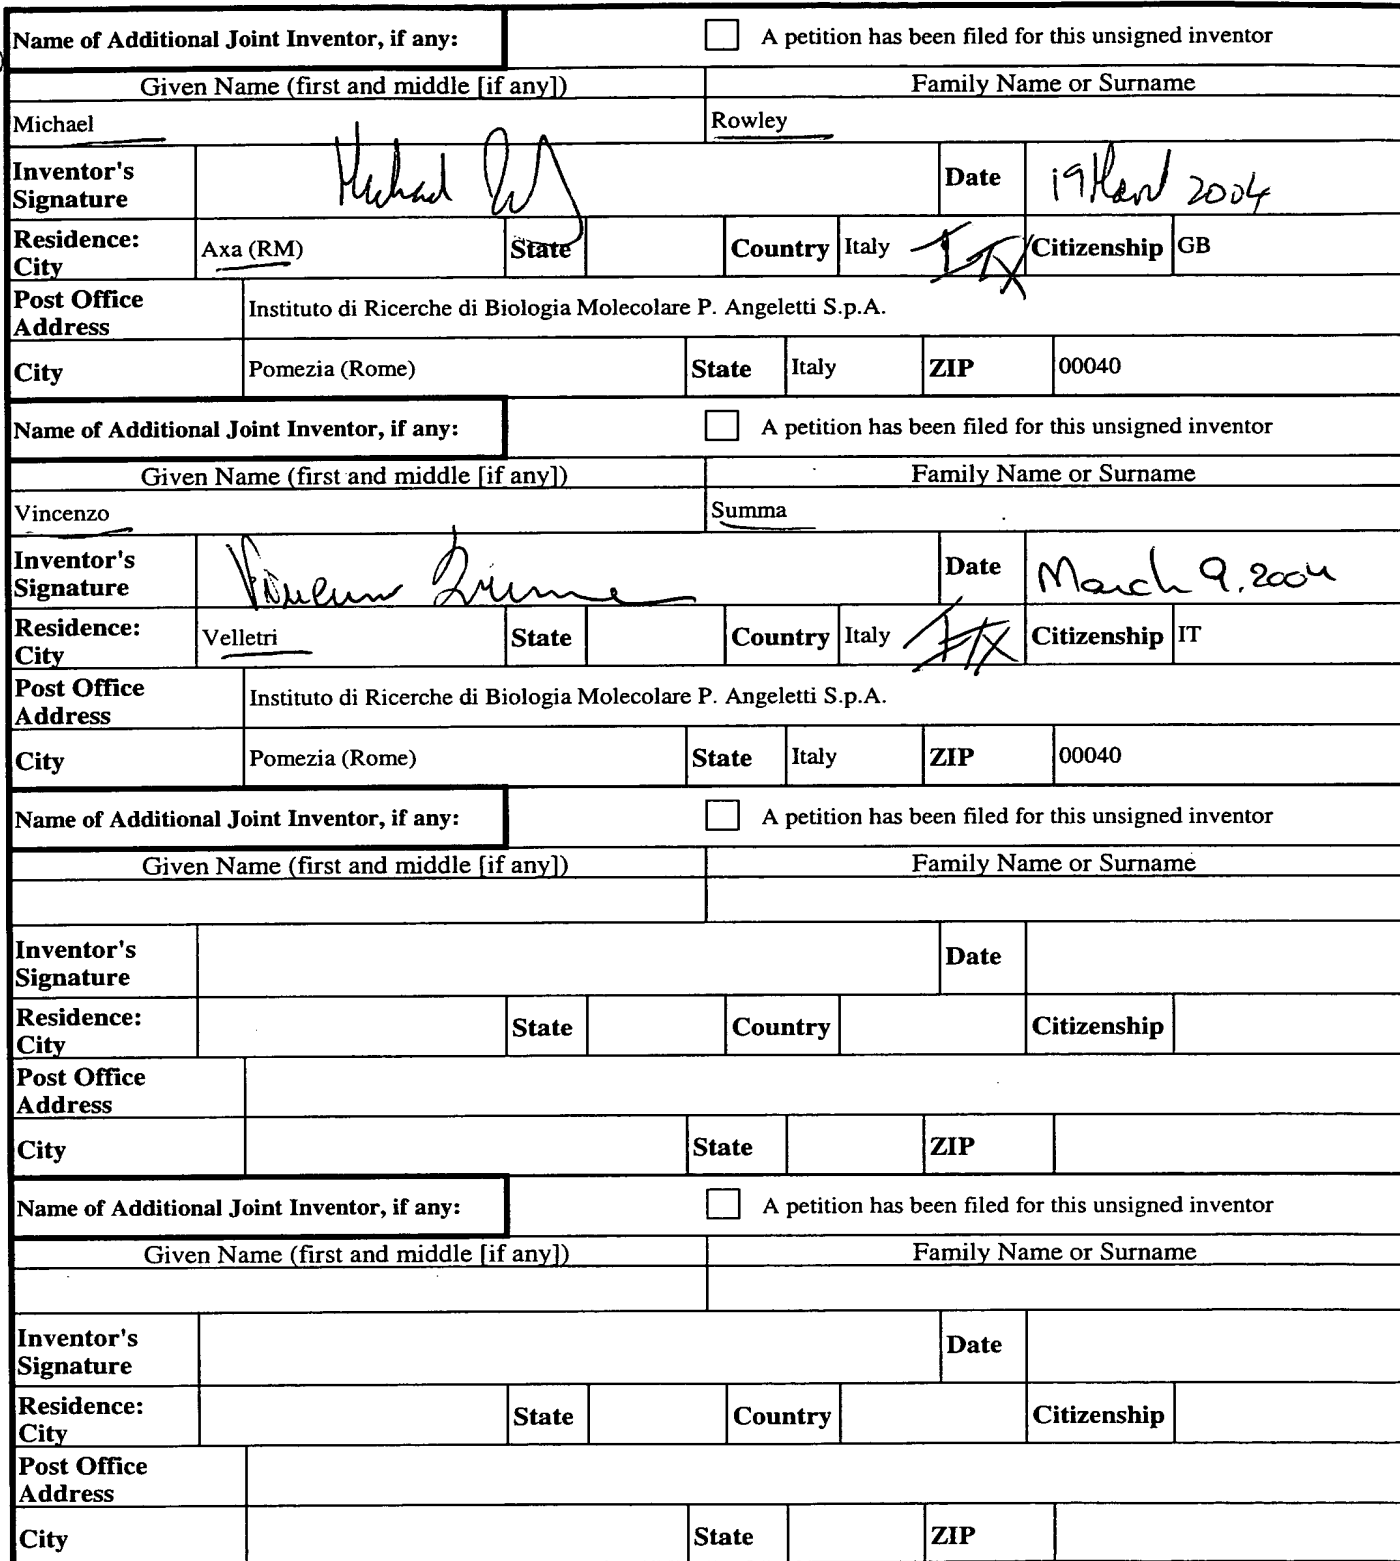 Name of Additional Joint Inventor, if any: A petition has been filed for this unsigned inventor
Given Name (first and middle [if any]) Family Name or Surname
Michael Rowley
Inventor's Signature Michael Date 19 March 2004
Residence: City Axa (RM) State Country Italy ITX Citizenship GB
Post Office Address Instituto di Ricerche di Biologia Molecolare P. Angeletti S.p.A.
City Pomezia (Rome) State Italy ZIP 00040
Name of Additional Joint Inventor, if any: A petition has been filed for this unsigned inventor
Given Name (first and middle [if any]) Family Name or Surname
Vincenzo Summa
Inventor's Signature Vincenzo Summa Date March 9. 2004
Residence: City Velletri State Country Italy ITX Citizenship IT
Post Office Address Instituto di Ricerche di Biologia Molecolare P. Angeletti S.p.A.
City Pomezia (Rome) State Italy ZIP 00040
Name of Additional Joint Inventor, if any: A petition has been filed for this unsigned inventor
Given Name (first and middle [if any]) Family Name or Surname
Inventor's Signature Date
Residence: City State Country Citizenship
Post Office Address
City State ZIP
Name of Additional Joint Inventor, if any: A petition has been filed for this unsigned inventor
Given Name (first and middle [if any]) Family Name or Surname
Inventor's Signature Date
Residence: City State Country Citizenship
Post Office Address
City State ZIP